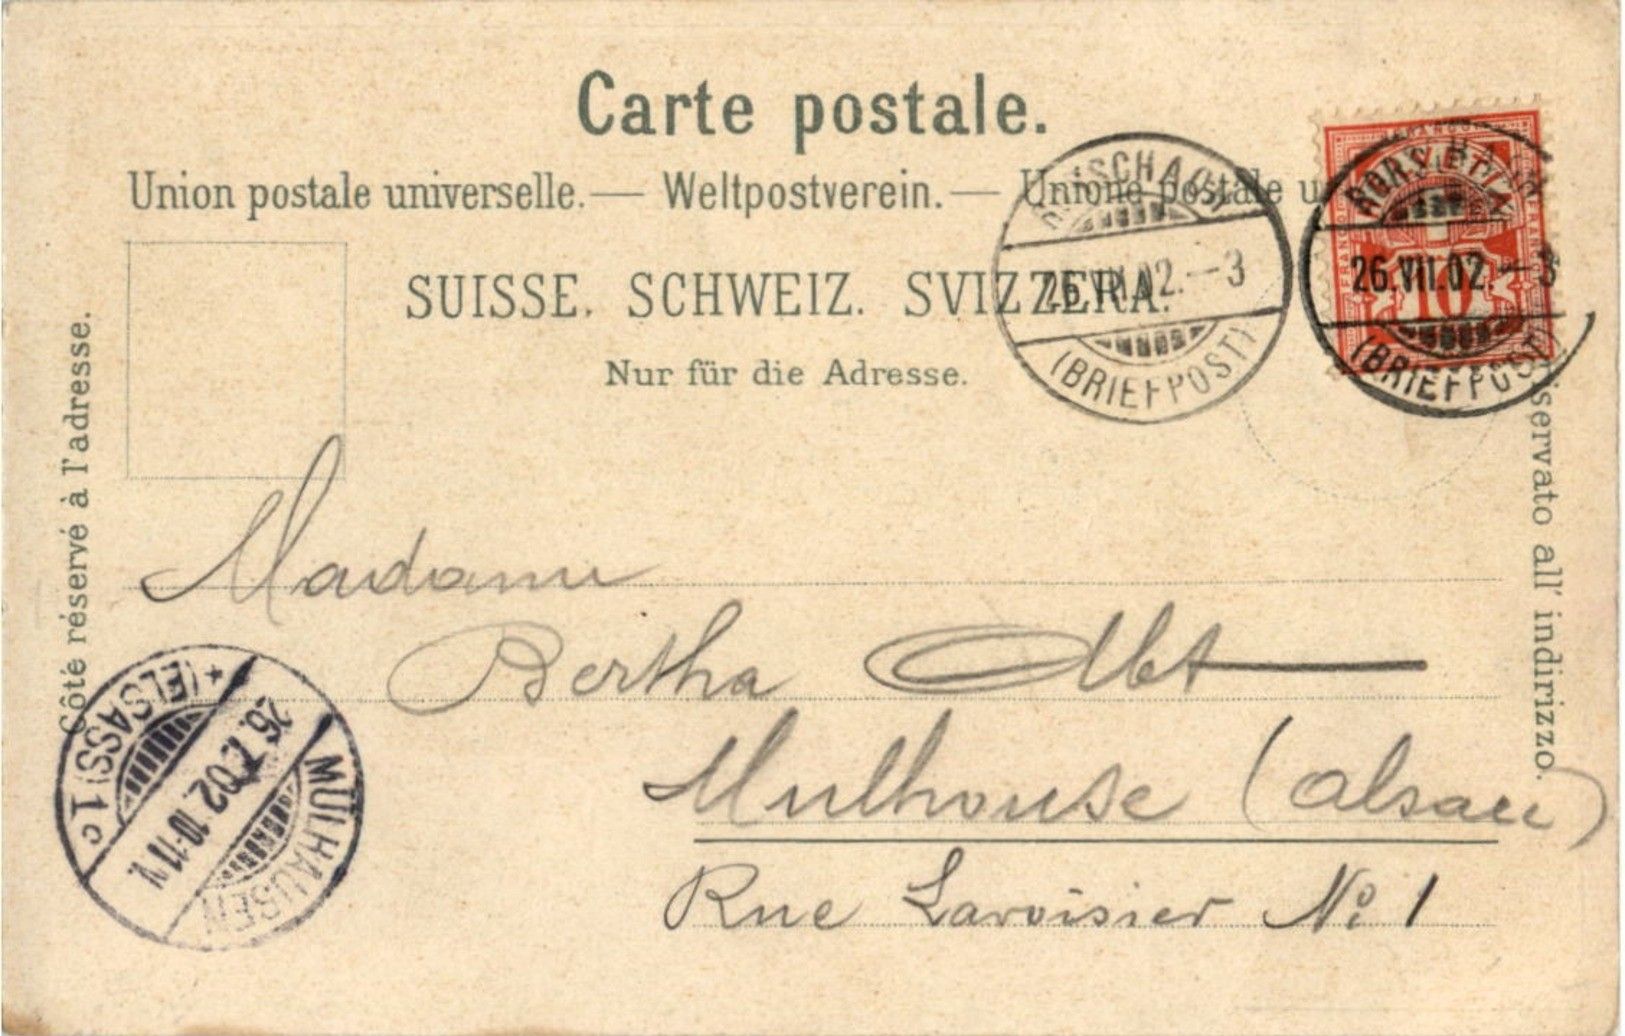 Carte postale.
Union postale universelle. — Weltpostverein. — Unione postale u
SUISSE. SCHWEIZ. SVIZZERA.
Nur für die Adresse.
Côté réservé à l'adresse.
servato all' indirizzo.
RORSCHACH
26.VII.02.–3
(BRIEFPOST)
RORSCHACH
26.VII.02.–3
(BRIEFPOST)
10
Madame
Bertha Abt
Mulhouse (Alsace)
Rue Lavoisier No 1
MÜLHAUSEN
26.7.02.10-11V.
* (ELSASS) 1c